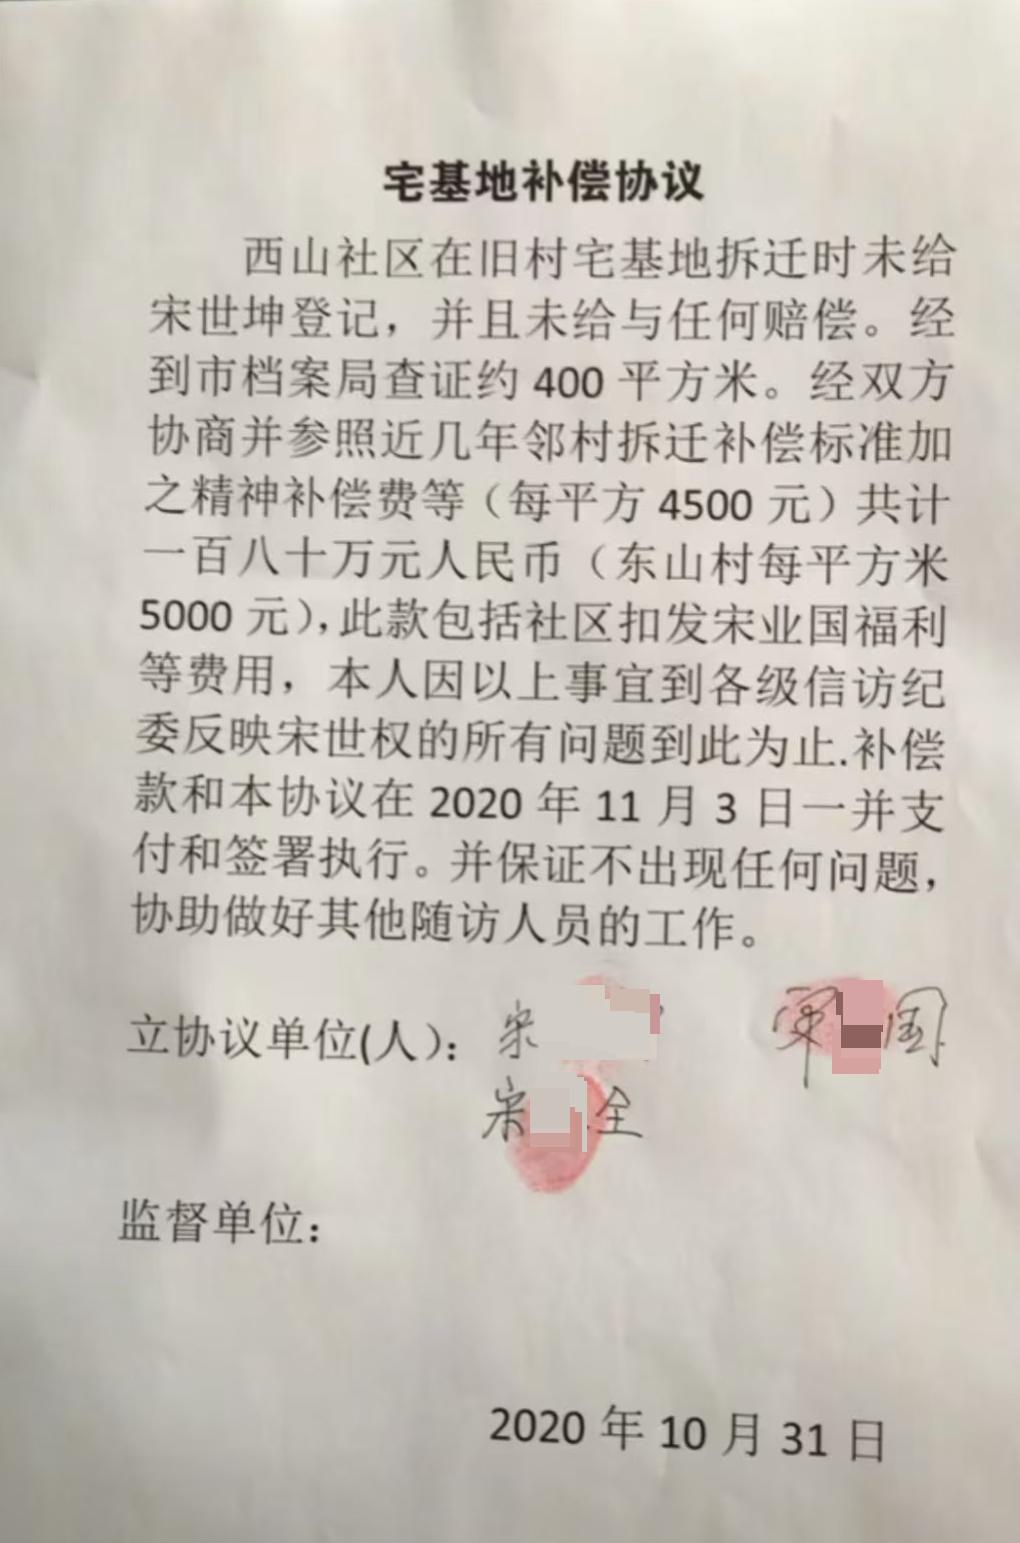 宅基地补偿协议
西山社区在旧村宅基地拆迁时未给
宋世坤登记，并且未给与任何赔偿。经
到市档案局查证约 400 平方米。经双方
协商并参照近几年邻村拆迁补偿标准加
之精神补偿费等（每平方 4500 元）共计
一百八十万元人民币（东山村每平方米
5000 元），此款包括社区扣发宋业国福利
等费用，本人因以上事宜到各级信访纪
委反映宋世权的所有问题到此为止.补偿
款和本协议在 2020 年 11 月 3 日一并支
付和签署执行。并保证不出现任何问题，
协助做好其他随访人员的工作。
立协议单位(人)：宋 国
宋 全
监督单位：
2020 年 10 月 31 日